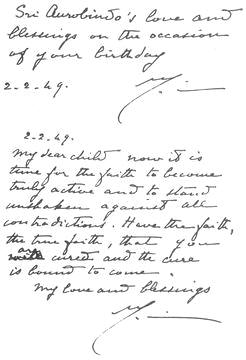 Sri Aurobindo's love and
blessings on the occasion
of your birthday
2-2-49.
2-2-49.
My dear child now it is
time for the faith to become
truly active and to stand
unshaken against all
contradictions. Have the faith,
the true faith, that you
are cured and the cure
is bound to come.
My love and blessings